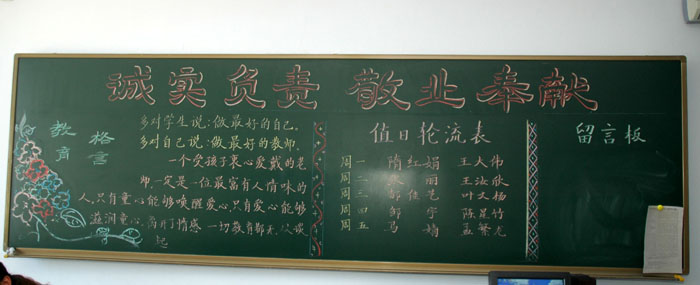 诚实负责 敬业奉献
教育格言
多对学生说：做最好的自己。
多对自己说：做最好的教师。
一个受孩子衷心爱戴的老
师,一定是一位最富有人情味的
人,只有童心能够唤醒爱心只有爱心能够
滋润童心,离开了情感 一切教育都无从谈
起
值日轮流表
周一 隋红娟 王大伟
周二 丽 王汝欣
周三 郭佳艺 叶又杨
周四 邹宇 陈星竹
周五 马娟 孟繁龙
留言板